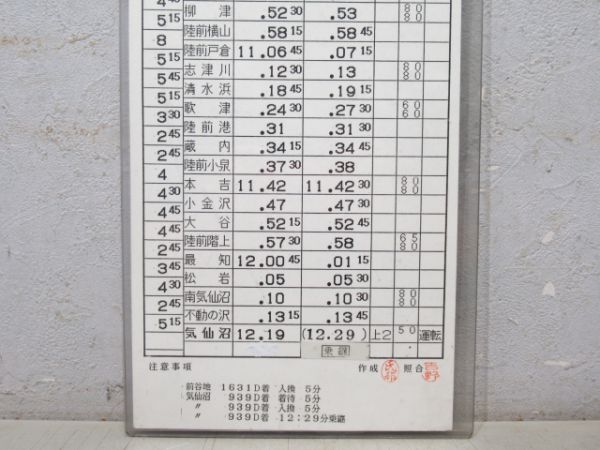 4 45
柳津 .52 30 .53 80 80
5 15
陸前横山 .58 15 .58 45
8
陸前戸倉 11.06 45 .07 15
5 15
志津川 .12 30 .13 80 80
5 45
清水浜 .18 45 .19 15
5 15
歌津 .24 30 .27 30 60 60
3 30
陸前港 .31 .31 30
2 45
蔵内 .34 15 .34 45
2 45
陸前小泉 .37 30 .38
4
本吉 11.42 11.42 30 80 80
4 30
小金沢 .47 .47 30
4 45
大谷 .52 15 .52 45
4 45
陸前階上 .57 30 .58 65 80
2 45
最知 12.00 45 .01 15
3 45
松岩 .05 .05 30
4 30
南気仙沼 .10 .10 30 80 80
2 45
不動の沢 .13 15 .13 45
5 15
気仙沼 12.19 (12.29) 上2 50 運転
乗継
注意事項 作成 照合
前谷地 1631D着 入換 5分
気仙沼 939D着 着待 5分
〃 939D着 入換 5分
〃 939D着 12:29分乗継